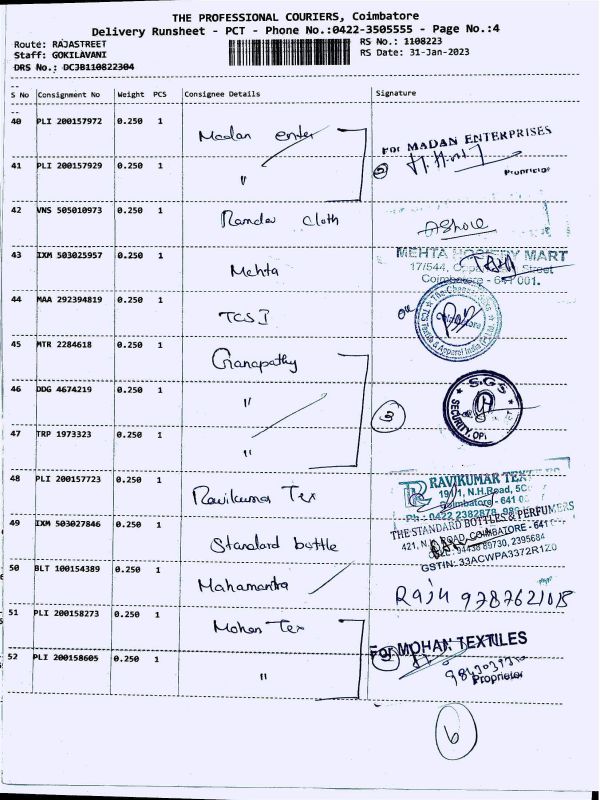 THE PROFESSIONAL COURIERS, Coimbatore
Delivery Runsheet - PCT - Phone No.:0422-3505555 - Page No.:4
Route: RAJASTREET
Staff: GOKILAVANI
DRS No.: DCJB110822304
RS No.: 1108223
RS Date: 31-Jan-2023
S No Consignment No Weight PCS Consignee Details Signature
40 PLI 200157972 0.250 1 Madan enter
FOR MADAN ENTERPRISES
Proprietor
41 PLI 200157929 0.250 1 "
42 VNS 505010973 0.250 1 Ramdev cloth
Ashok
43 IXM 503025957 0.250 1 Mehta
MEHTA HOSIERY MART
17/544, Street
Coimbatore - 641 001.
44 MAA 292394819 0.250 1 TCS I
TCS Textile & Apparel India
45 MTR 2284618 0.250 1 Ganapathy
46 DDG 4674219 0.250 1 "
3
S.G.S
SECURITY
47 TRP 1973323 0.250 1 "
48 PLI 200157723 0.250 1 Ravikumar Tex
RAVIKUMAR TEX
191/1, N.H.Road,
Coimbatore - 641
Ph : 0422 2382878,
49 IXM 503027846 0.250 1 Standard bottle
THE STANDARD BOTTLES & PERFUMERS
421, N. ROAD, COIMBATORE - 641
94438 89730, 2395684
GSTIN: 33ACWPA3372R1Z0
50 BLT 100154389 0.250 1 Mahamantra
Raju 9787621018
51 PLI 200158273 0.250 1 Mohan Tex
For MOHAN TEXTILES
Proprietor
52 PLI 200158605 0.250 1 "
6